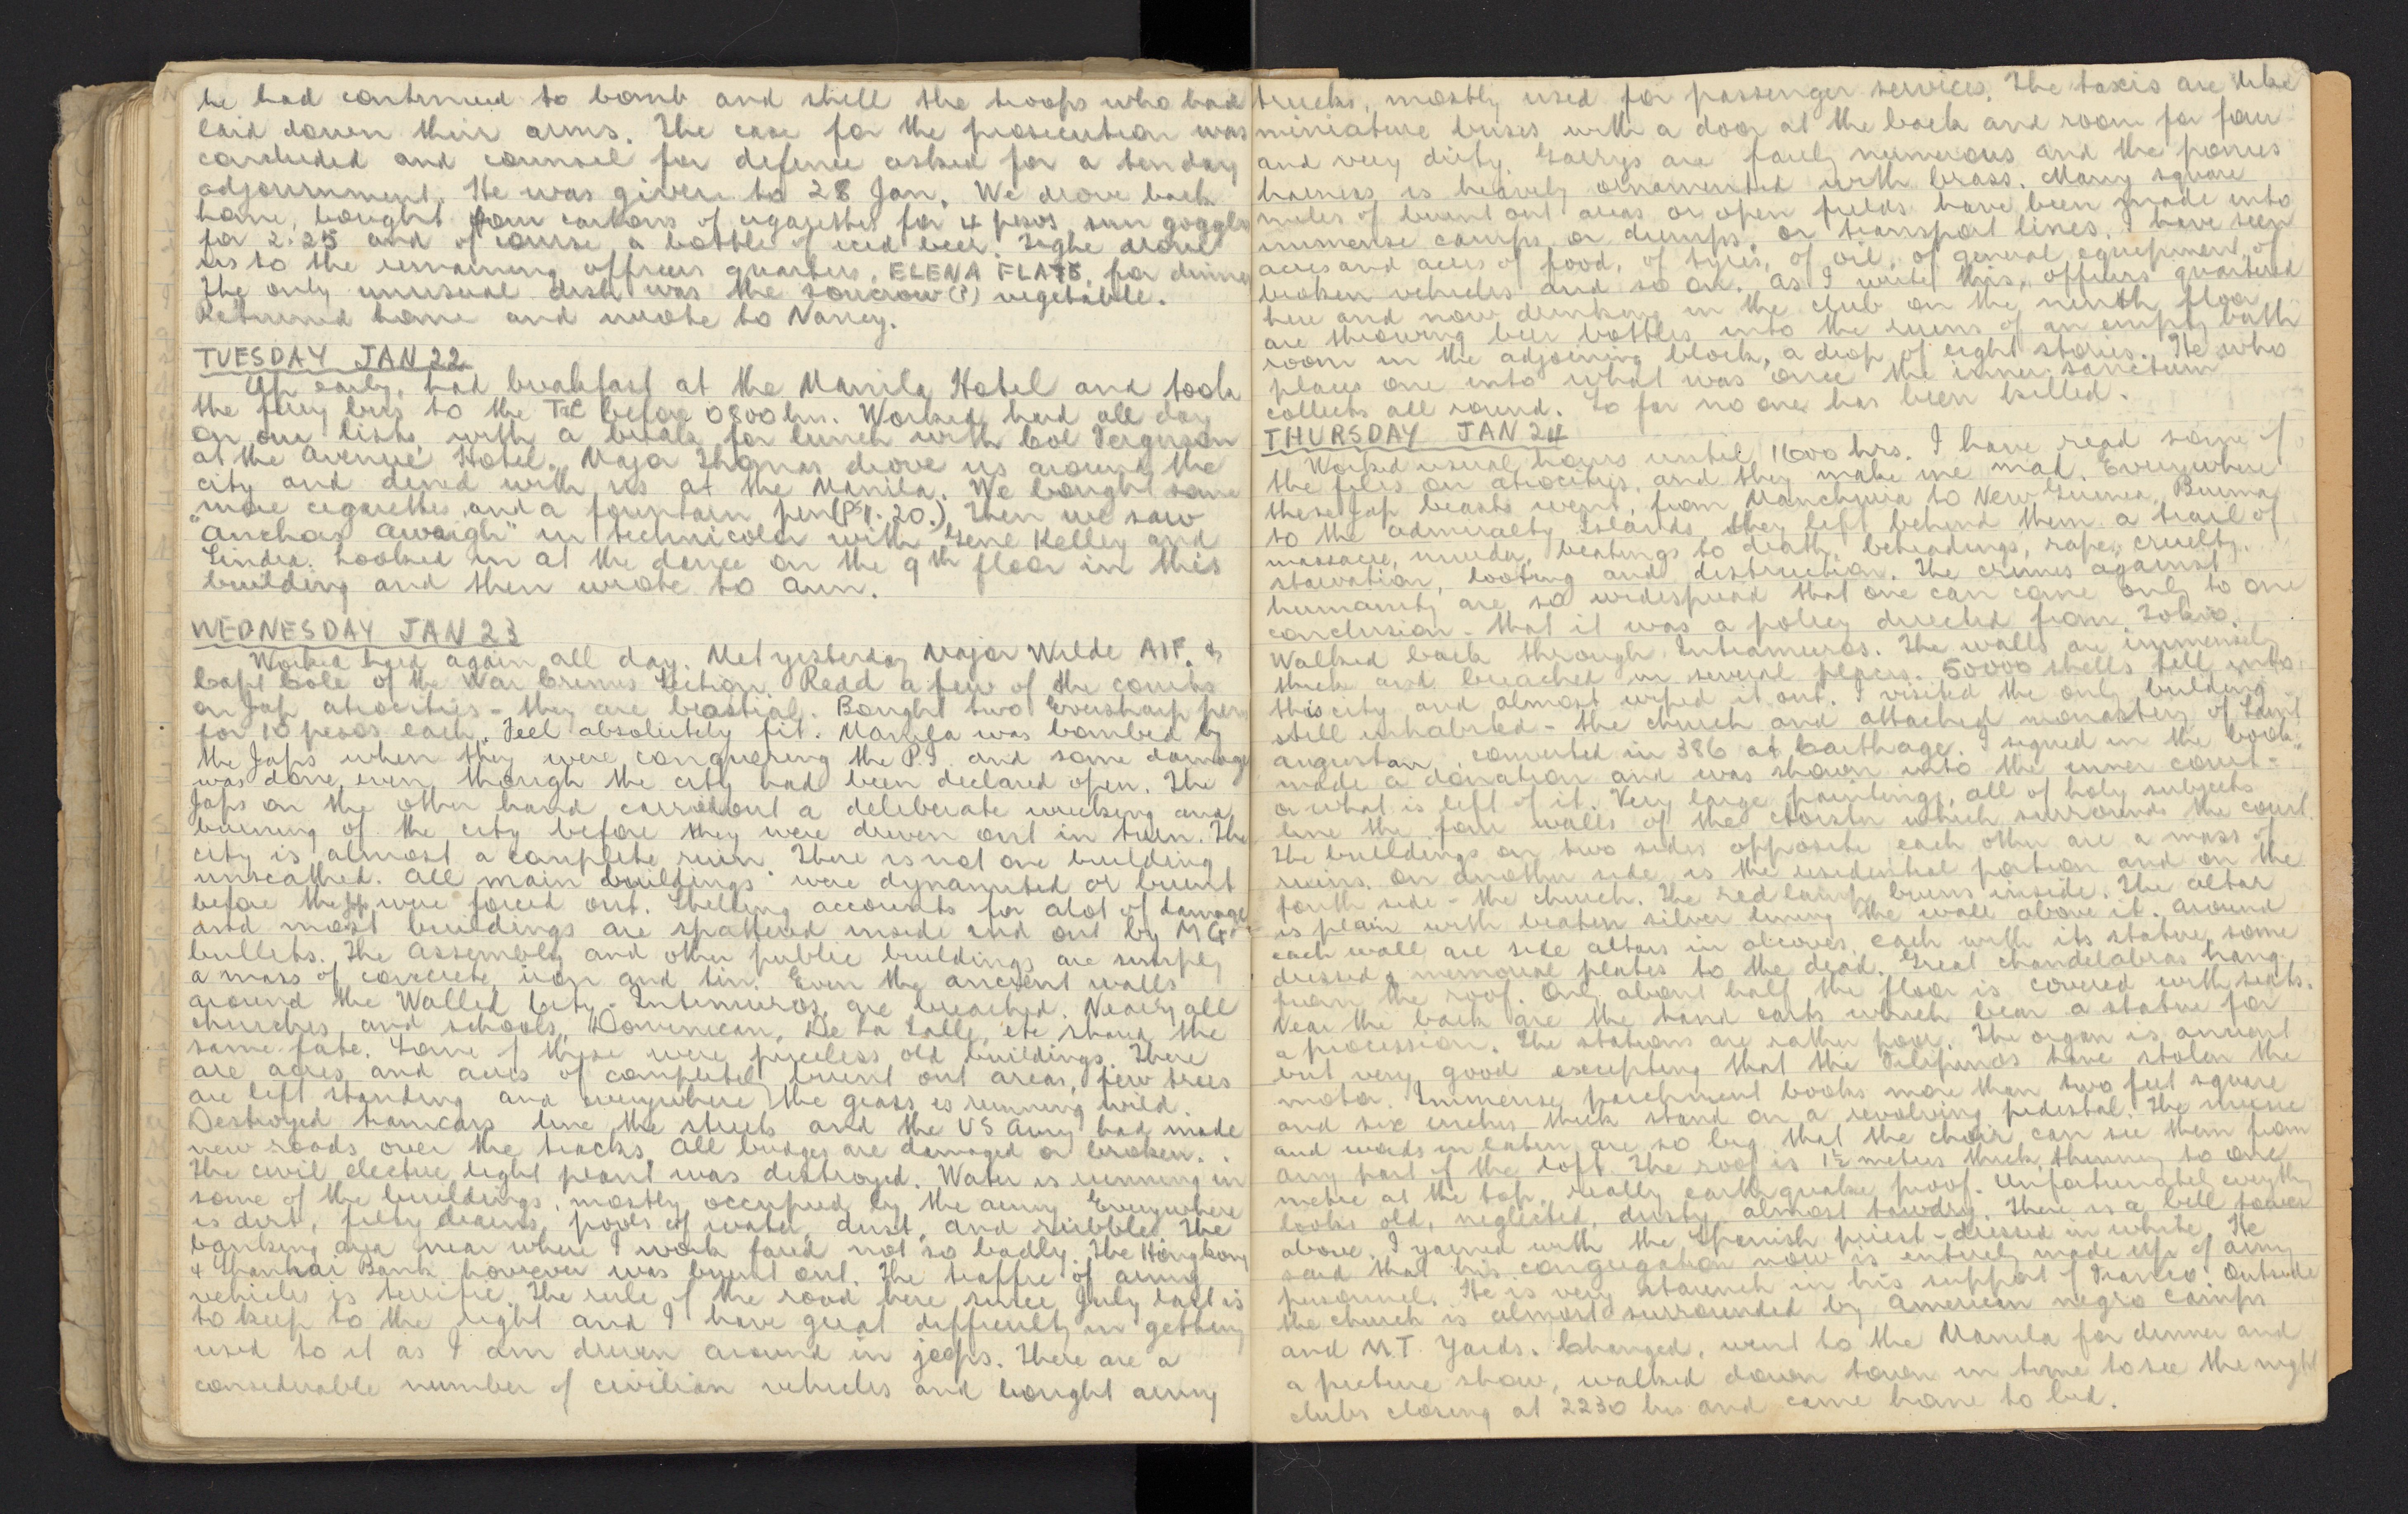 he had continued to bomb and shell the troops who had
laid down their arms. The case for the prosecution was
concluded and counsel for defence asked for a ten day
adjournment. He was given to 28 Jan. We drove back
home, bought four cartons of cigarettes for 4 pesos, sun goggles
for 2.25 and of course a bottle of iced beer. drove
us to the remaining officers quarters, ELENA FLATS, for dinner
The only unusual dish was the (?) vegetable.
Returned home and wrote to Nancy.
TUESDAY JAN 22
Up early, had breakfast at the Manila Hotel and took
the ferry bus to the before 0800 hrs. Worked hard all day
on our lists with a break for lunch with Col Ferguson
at the Avenue Hotel. Major Thomas drove us around the
city and dined with us at the Manila. We bought some
more cigarettes and a fountain pen (Ps 1.20.) Then we saw
"Anchors Aweigh" in technicolor with Gene Kelley and
Looked in at the dance on the 9th floor in this
building and then wrote to Aun.
WEDNESDAY JAN 23
Worked hard again all day. Met yesterday Major Wilde AIF. &
Capt Cole of the War Crimes Section. Read a few of the counts
on Jap atrocities - they are beastial. Bought two Eversharp pens
for 10 pesos each. Feel absolutely fit. Manila was bombed by
the Japs when they were conquering the P.I. and some damage
was done even though the city had been declared open. The
Japs on the other hand carried out a deliberate wrecking and
burning of the city before they were driven out in turn. The
city is almost a complete ruin. There is not one building
unscathed. All main buildings were dynamited or burnt
before the Japs were forced out. Shelling accounts for alot of damage
and most buildings are spattered inside and out by MG
bullets. The Assembly and other public buildings are simply
a mass of concrete, iron and tin. Even the ancient walls
around the Walled City - Intramuros, are breached. Nearly all
churches and schools, Dominican, De La Salle, etc shared the
same fate. Some of these were priceless old buildings. There
are acres and acres of completely burnt out areas, few trees
are left standing and everywhere the grass is running wild.
Destroyed tramcars line the streets and the US Army had made
new roads over the tracks. All bridges are damaged or broken.
The civil electric light plant was destroyed. Water is running in
some of the buildings, mostly occupied by the army. Everywhere
is dirt, filthy drains, pools of water, dust, and rubble. The
banking area near where I work fared not so badly. The Hongkong
& Shanhai Bank however was burnt out. The traffic of army
vehicles is terrific. The rule of the road here since July last is
to keep to the right and I have great difficulty in getting
used to it as I am driven around in jeeps. There are a
considerable number of civilian vehicles and bought army
trucks, mostly used for passenger services. The taxis are like
miniature buses with a door at the back and room for four
and very dirty. Garrys are fairly numerous and the ponies
harness is heavily ornamented with brass. Many square
miles of burnt out areas or open fields have been made into
immense camps or dumps, or transport lines. I have seen
acres and acres of food, of tyres, of oil, of general equipment, of
broken vehicles and so on. As I write this, officers quartered
here and now drinking in the club on the ninth floor
are throwing beer bottles into the ruins of an empty bath
room in the adjoining block, a drop of eight stories. He who
places one into what was once the inner sanctum
collects all round. So far no one has been killed.
THURSDAY JAN 24
Worked usual hours until 1600 hrs. I have read some of
the files on atrocities, and they make me mad. Everywhere
these Jap beasts went, from Manchuria to New Guinea, Burma
to the Admiralty Islands they left behind them a trail of
massacre, murder, beatings to death, beheadings, rape, cruelty,
starvation, looting and destruction. The crimes against
humanity are so widespread that one can come only to one
conclusion - that it was a policy directed from Tokio.
Walked back through Intramuros. The walls are immensely
thick and breached in several places. 50000 shells fell into
this city and almost wiped it out. I visited the only building
still inhabited - the church and attached monastery of Saint
Augustan, converted in 386 at Carthage. I signed in the book,
made a donation and was shown into the inner court -
or what is left of it. Very large paintings, all of holy subjects
line the four walls of the which surrounds the court.
The buildings on two sides opposite each other are a mass of
ruins. On another side is the residential portion and on the
fourth side - the church. The red lamp burns inside. The altar
is plain with beaten silver lining the wall above it. Around
each wall are side altars in alcoves, each with its statue, some
dressed & memorial plates to the dead. Great chandelabras hang
from the roof. Only about half the floor is covered with seats.
Near the back are the hand carts which bear a statue for
a procession. The stations are rather poor. The organ is ancient
but very good excepting that the Filipinos have stolen the
motor. Immense parchment books more than two feet square
and six inches thick stand on a revolving pedestal. The music
and words in latin are so big that the choir can see them from
any part of the loft. The roof is 1½ metres thick, thinning to one
metre at the top, really earthquake proof. Unfortunately everything
looks old, neglected, dusty, almost tawdry. There is a bell tower
above. I yarned with the Spanish priest - dressed in white. He
said that his congregation now is entirely made up of army
personnel. He is very staunch in his support of Franco. Outside
the church is almost surrounded by American negro camps
and M.T. Yards. Changed, went to the Manila for dinner and
a picture show, walked down town in time to see the night
clubs closing at 2230 hrs and came home to bed.